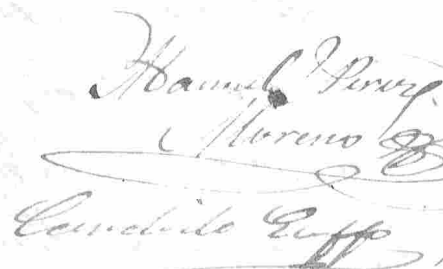 Manuel Perez
Moreno
Candido